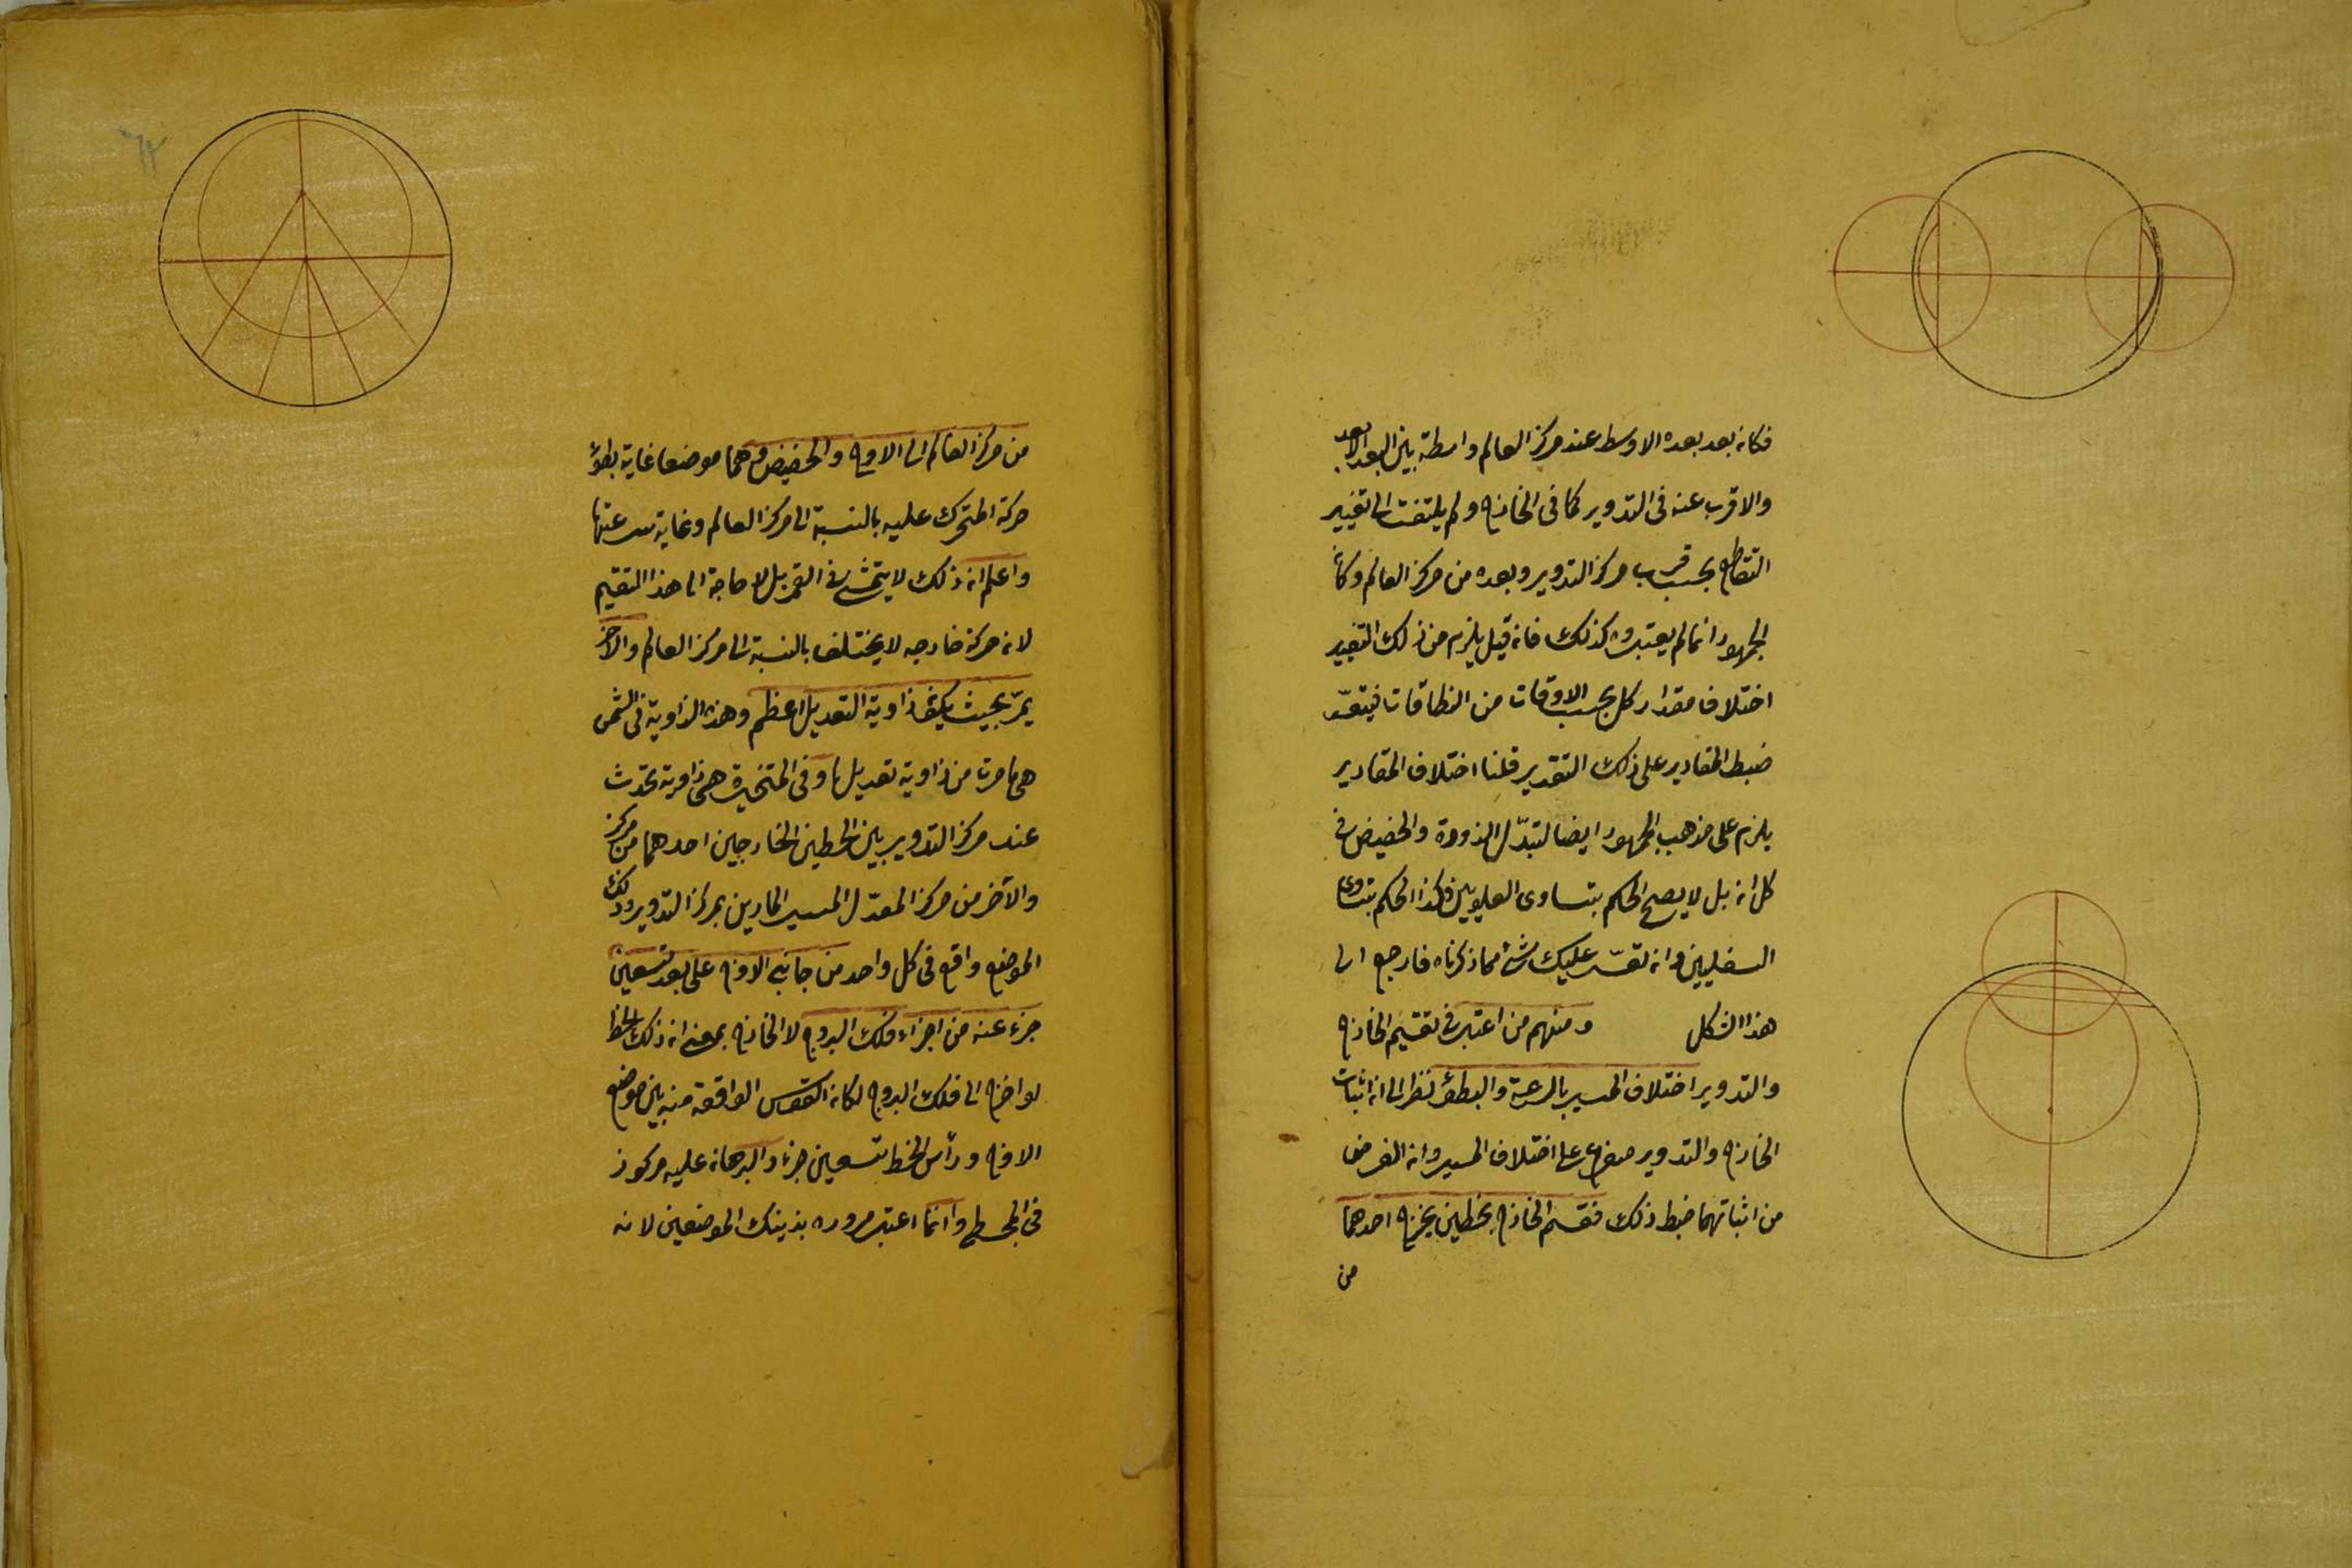 فكانه بعد بعده الاوسط عند مركز العالم واسطة بين البعد الابعد
والاقرب عنه فى التدوير كما فى الخارج ولم يلتفت الى تغيير
التقاطع بحسب قرب مركز التدوير وبعده من مركز العالم وكأن
الجمهور انما لم يعتبروه كذلك فانه قيل يلزم من ذلك التغيير
اختلاف مقدار كل بحسب الاوقات من النطاقات فيتعسّر
ضبط المقادير على ذلك التقدير قلنا اختلاف المقادير
يلزم على مذهب الجمهور ايضا لتبدّل الذروة والحضيض فى
كل ان بل لا يصح الحكم بتساوى العلويين وكذا الحكم بتساوى
السفليين وان تعسّر عليك شئ مما ذكرناه فارجع الى
هذا الشكل ومنهم من اعتبر فى تقسيم الخارج
والتدوير اختلاف المسير بالسرعة والبطؤ نظرا الى ان اثبات
الخارج والتدوير متفرع على اختلاف المسير وان الغرض
من اثباتهما ضبط ذلك فقسم الخارج بخطين يخرج احدهما
من
من مركز العالم الى الاوج والحضيض وهما موضعا غاية بطؤ
حركة المتحرك عليه بالنسبة الى مركز العالم وغاية سرعتها
واعلم ان ذلك لا يتمشى فى القمر بل لا حاجة الى هذا التقسيم
لان حركة خارجه لا يختلف بالنسبة الى مركز العالم والاخر
يمرّ بحيث يكون زاوية التعديل اعظم وهذه الزاوية فى الشمس
هى ما مرت من زاوية تعديلها وفى المتحيرة هى زاوية تحدث
عند مركز التدوير بين الخطين الخارجين احدهما من مركز
والآخر من مركز المعدّل المسير المارين بمركز التدوير وذلك
الموضع واقع فى كل واحد من جانبى الاوج على بعد تسعين
جزء عنه من اجزاء فلك البروج لا الخارج بمعنى ان ذلك الخط
لو اخرج الى فلك البروج لكانه القوس الواقعة منه بين موضع
الاوج ورأس الخط تسعين جزء والبرهان عليه مركوز
فى المجسطى وانما اعتبر مروره بذينك الموضعين لانه